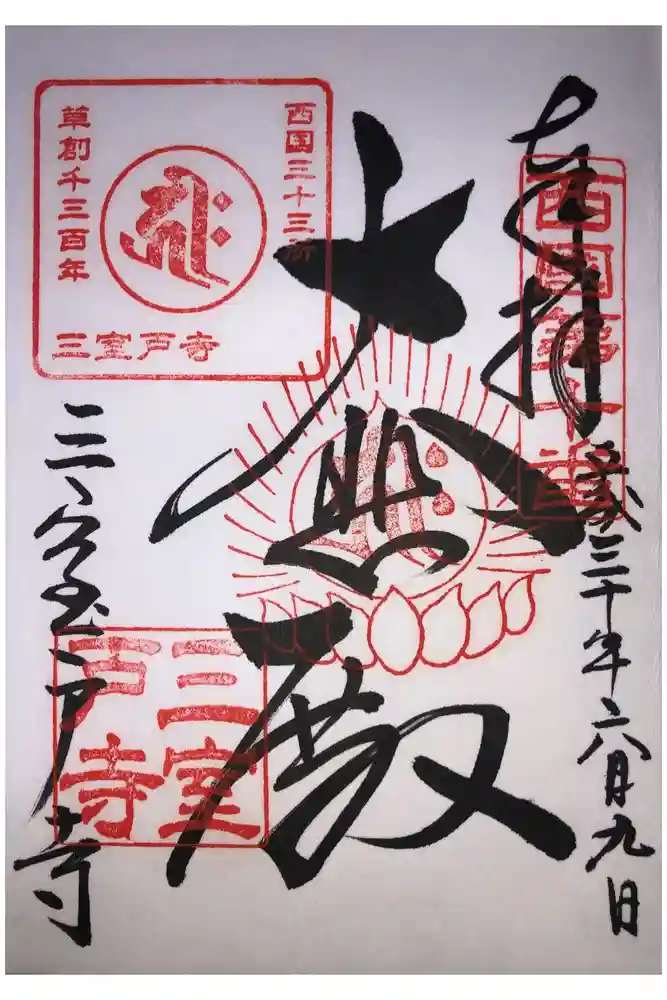 奉拝
平成三十年六月九日
西国第十番
大悲殿
西国三十三所
草創千三百年
三室戸寺
三室戸寺
三室
戸寺